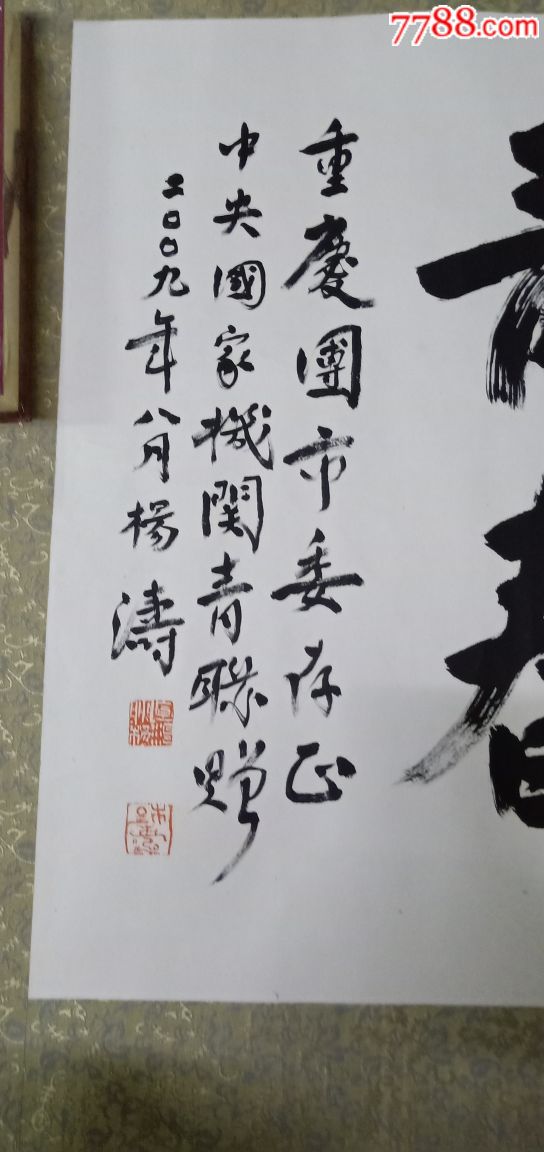 7788.com
青春
重慶團市委存正
中央國家機関青联贈
二〇〇九年八月楊濤